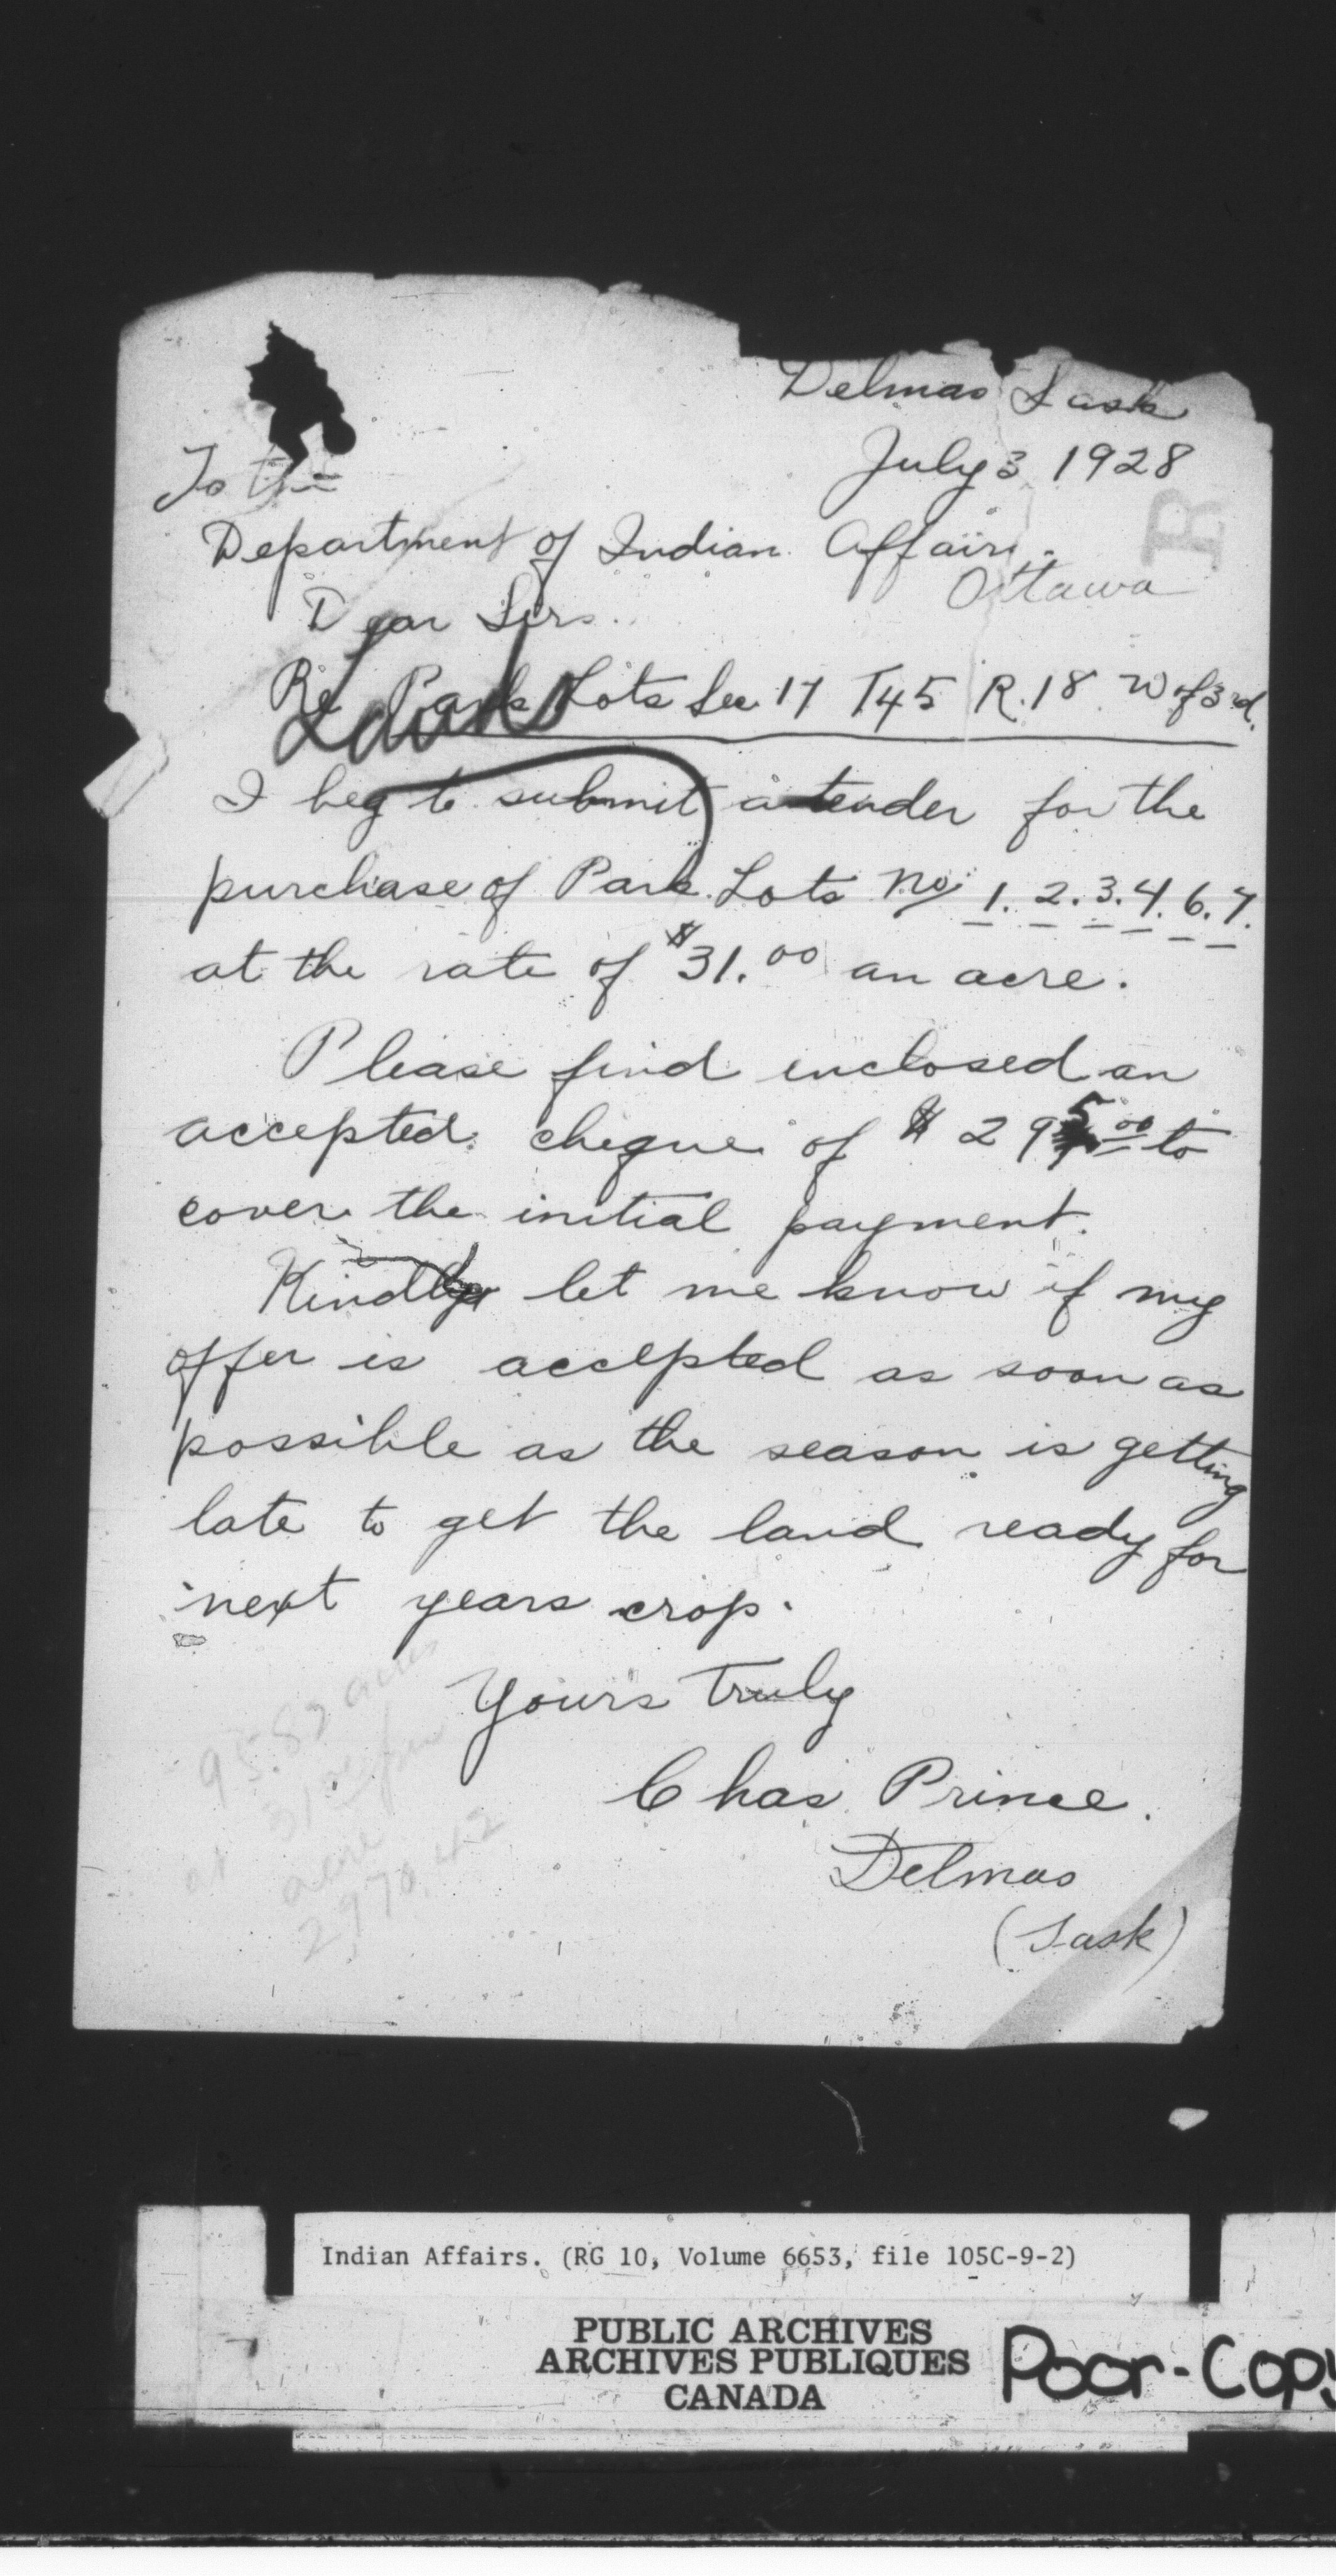 Delmas Sask
July 3 1928
To the
Department of Indian Affairs.
Ottawa
Dear Sirs.
Re Park Lots Sec 17 T45 R.18 W of 3rd.
I beg to submit a tender for the
purchase of Park Lots No 1. 2. 3. 4. 6. 7.
at the rate of $31.00 an acre.
Please find enclosed an
accepted cheque of $295.00 to
cover the initial payment.
Kindly let me know if my
offer is accepted as soon as
possible as the season is getting
late to get the land ready for
next years crop.
Yours Truly
Chas Prince.
Delmas
(Sask)
95.82 acres
at 31.00 per
acre
2970.42
Indian Affairs. (RG 10, Volume 6653, file 105C-9-2)
PUBLIC ARCHIVES
ARCHIVES PUBLIQUES
CANADA
Poor-Copy